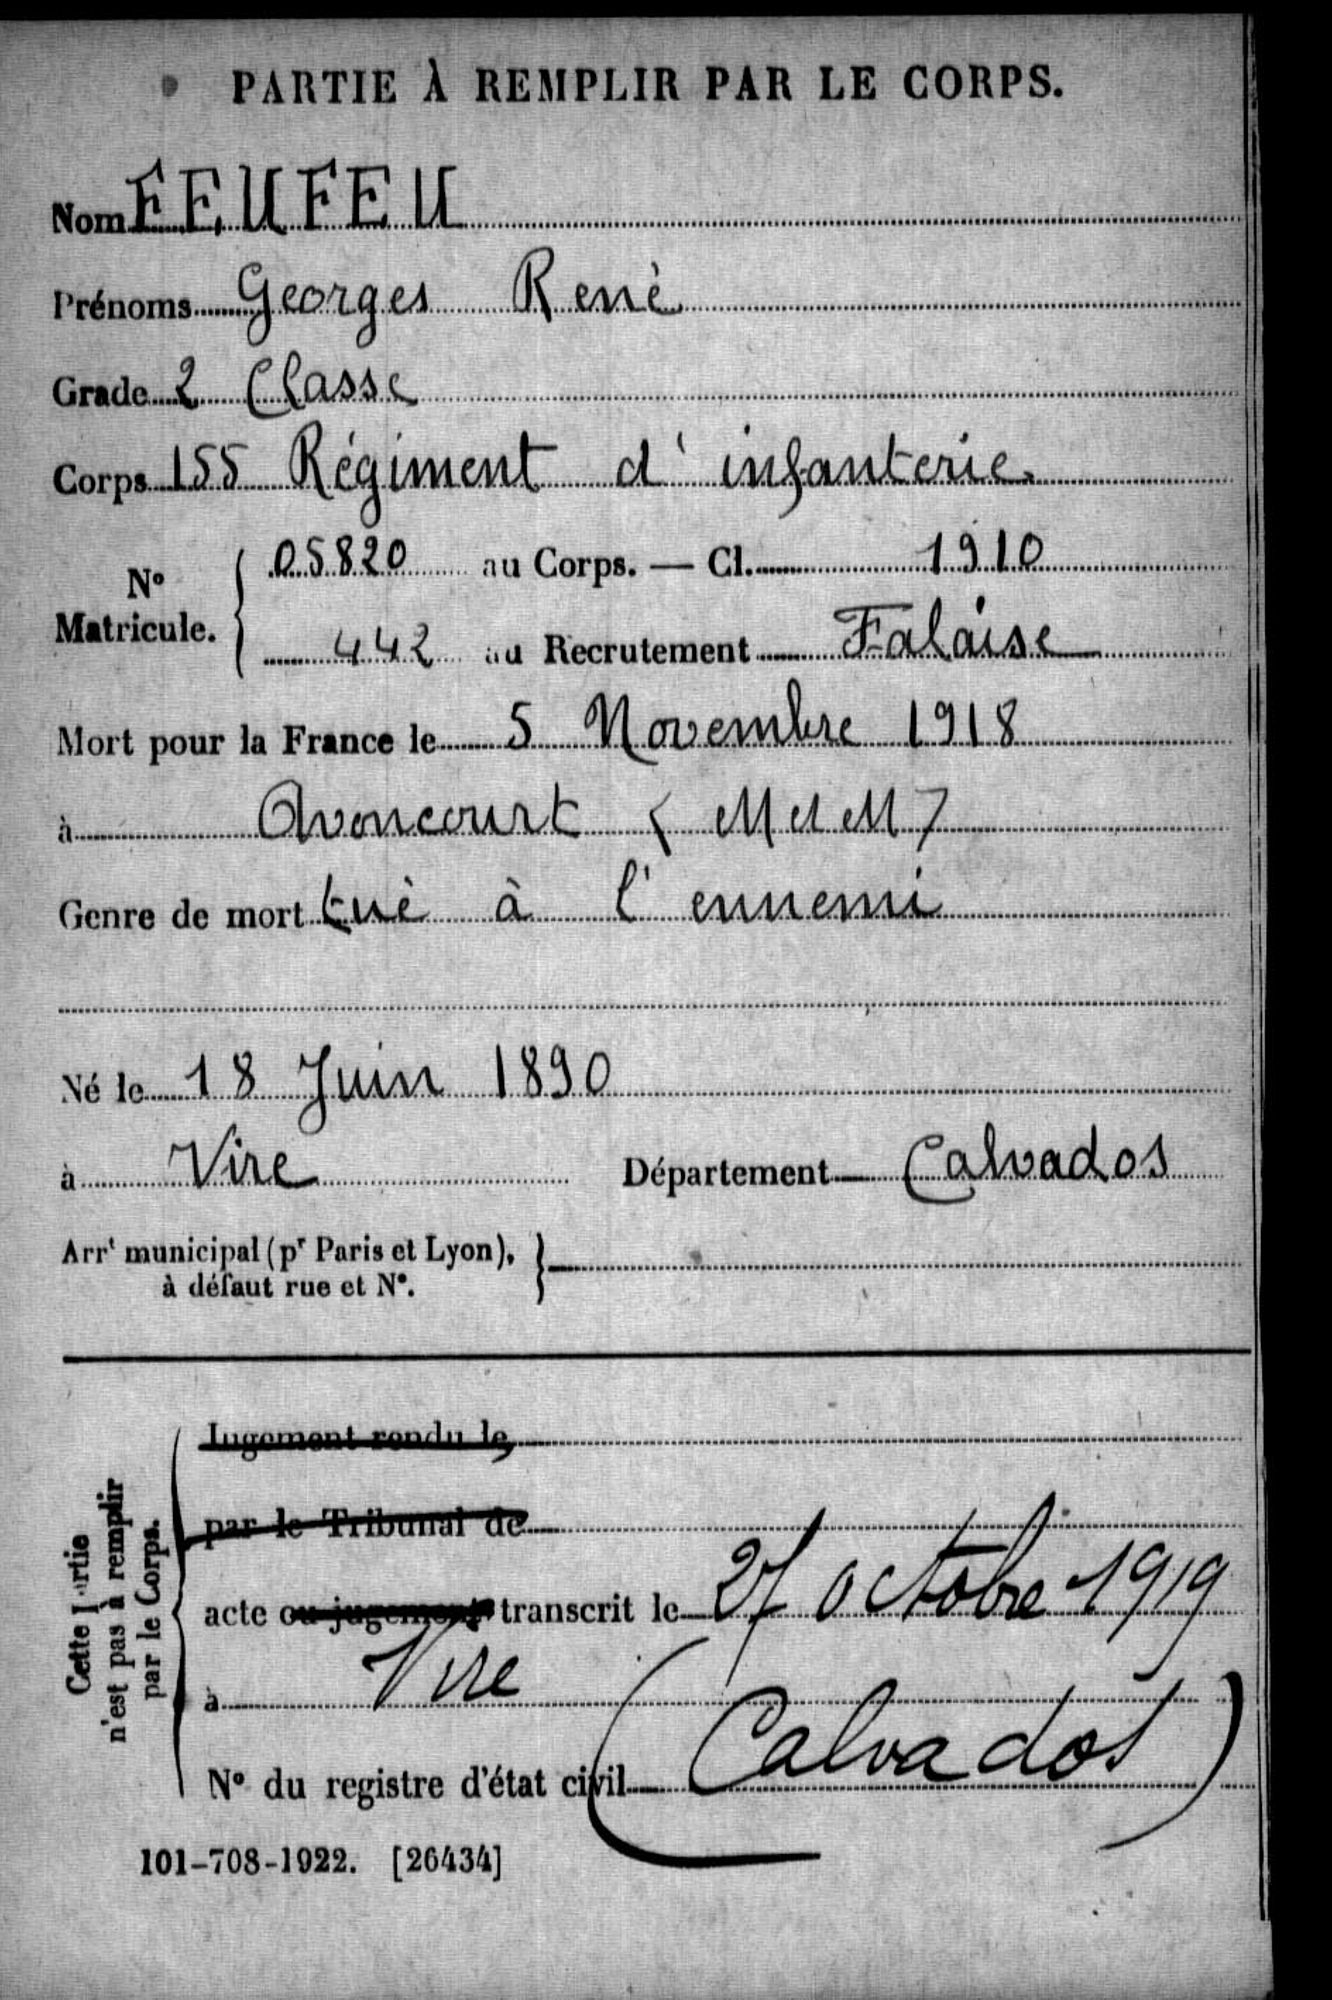 PARTIE À REMPLIR PAR LE CORPS.
Nom FEUFEU
Prénoms Georges Renè
Grade 2 Classe
Corps 155 Régiment d'infanterie.
N° Matricule. 05820 au Corps. — Cl. 1910
442 au Recrutement Falaise
Mort pour la France le 5 Novembre 1918
à Avoncourt (M et M)
Genre de mort tuè à l'ennemi
Né le 18 Juin 1890
à Vire Département Calvados
Arrt municipal (pr Paris et Lyon),
à défaut rue et N°.
Cette Partie
n'est pas à remplir
par le Corps.
Jugement rendu le
par le Tribunal de
acte ou jugement transcrit le 27 octobre 1919
à Vire
N° du registre d'état civil (Calvados)
101-708-1922. [26434]